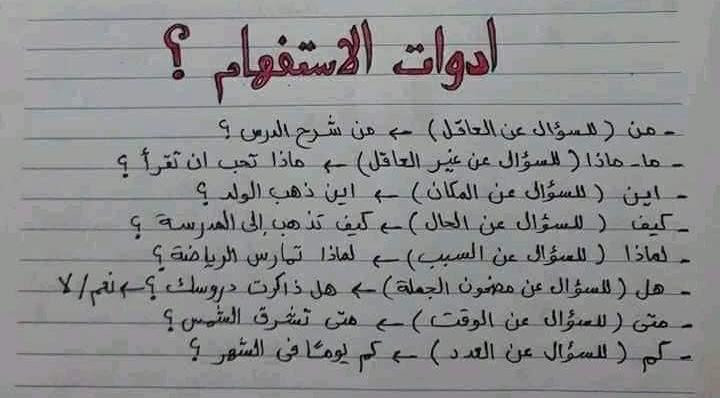 ادوات الاستفهام ؟
- من (للسؤال عن العاقل) ← من شرح الدرس ؟
- ما - ماذا (للسؤال عن غير العاقل) ← ماذا تحب ان تقرأ ؟
- اين (للسؤال عن المكان) ← اين ذهب الولد ؟
- كيف (للسؤال عن الحال) ← كيف تذهب إلى المدرسة ؟
- لماذا (للسؤال عن السبب) ← لماذا تمارس الرياضة ؟
- هل (للسؤال عن مضمون الجملة) ← هل ذاكرت دروسك ؟ ← نعم / لا
- متى (للسؤال عن الوقت) ← متى تشرق الشمس ؟
- كم (للسؤال عن العدد) ← كم يومًا فى الشهر ؟